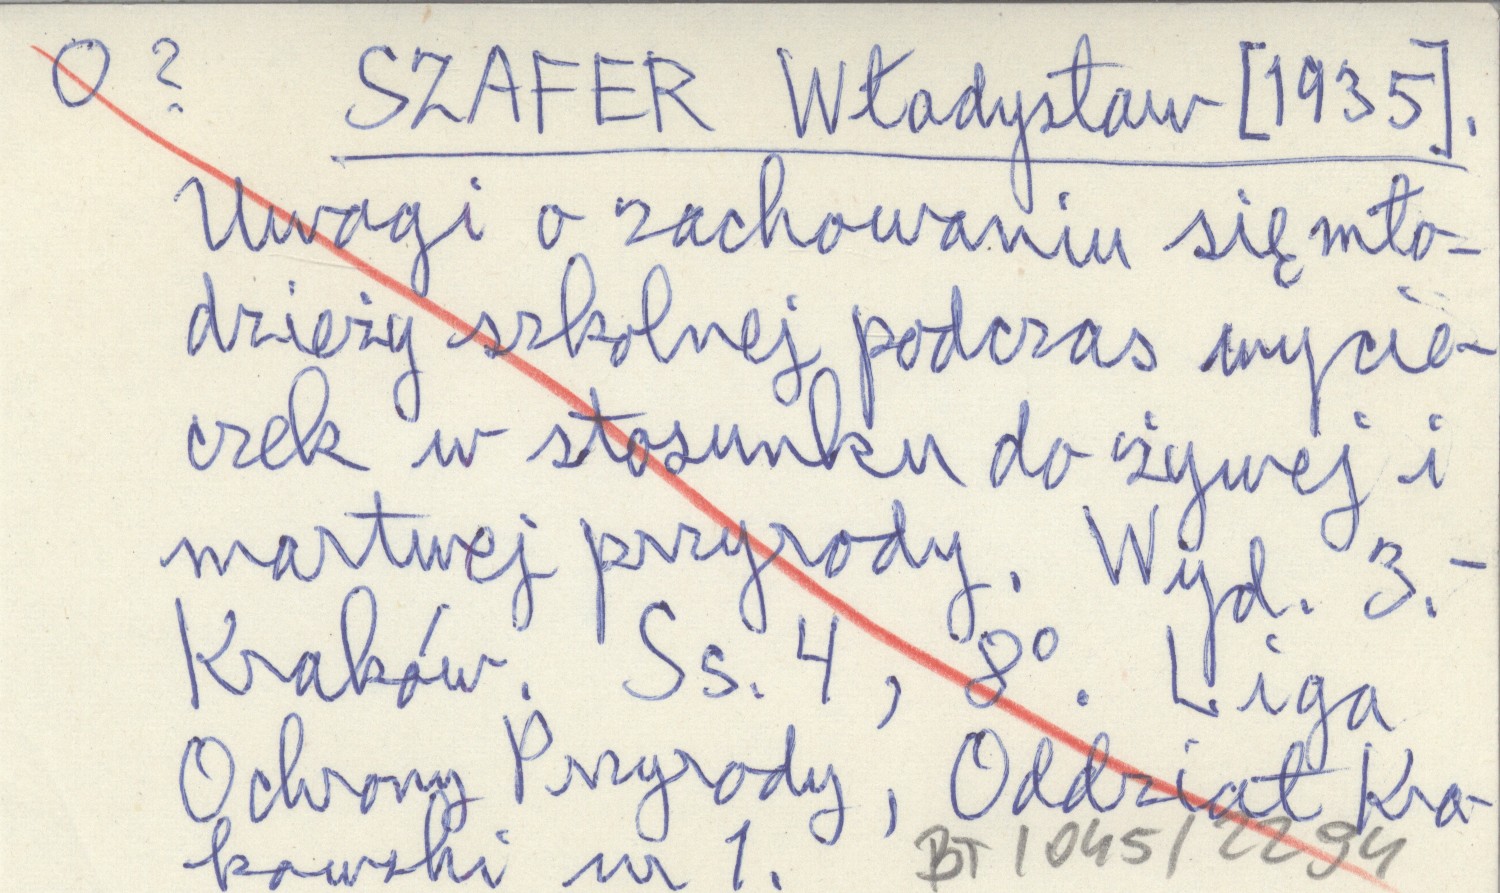 O ? SZAFER Władysław [1935].
Uwagi o zachowaniu się mło-
dzieży szkolnej podczas wycie-
czek w stosunku do żywej i
martwej przyrody. Wyd. 3.-
Kraków. Ss. 4, 8°. Liga
Ochrony Przyrody, Oddział Kra-
kowski nr 1.
BT 1045/2294